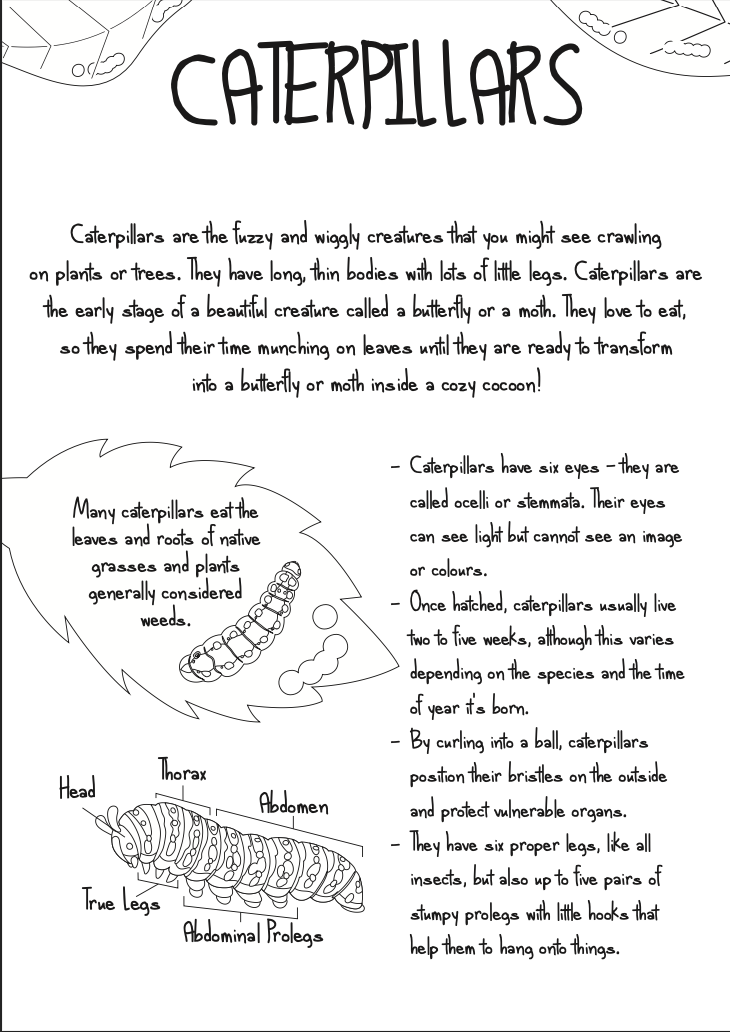 CATERPILLARS
Caterpillars are the fuzzy and wiggly creatures that you might see crawling
on plants or trees. They have long, thin bodies with lots of little legs. Caterpillars are
the early stage of a beautiful creature called a butterfly or a moth. They love to eat,
so they spend their time munching on leaves until they are ready to transform
into a butterfly or moth inside a cozy cocoon!
Many caterpillars eat the
leaves and roots of native
grasses and plants
generally considered
weeds.
- Caterpillars have six eyes - they are
called ocelli or stemmata. Their eyes
can see light but cannot see an image
or colours.
- Once hatched, caterpillars usually live
two to five weeks, although this varies
depending on the species and the time
of year it's born.
- By curling into a ball, caterpillars
position their bristles on the outside
and protect vulnerable organs.
- They have six proper legs, like all
insects, but also up to five pairs of
stumpy prolegs with little hooks that
help them to hang onto things.
Thorax
Head
Abdomen
True Legs
Abdominal Prolegs